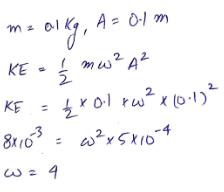 m = 0.1 Kg, A = 0.1 m
KE = 1/2 m ω² A²
KE = 1/2 × 0.1 × ω² × (0.1)²
8×10⁻³ = ω² × 5×10⁻⁴
ω = 4